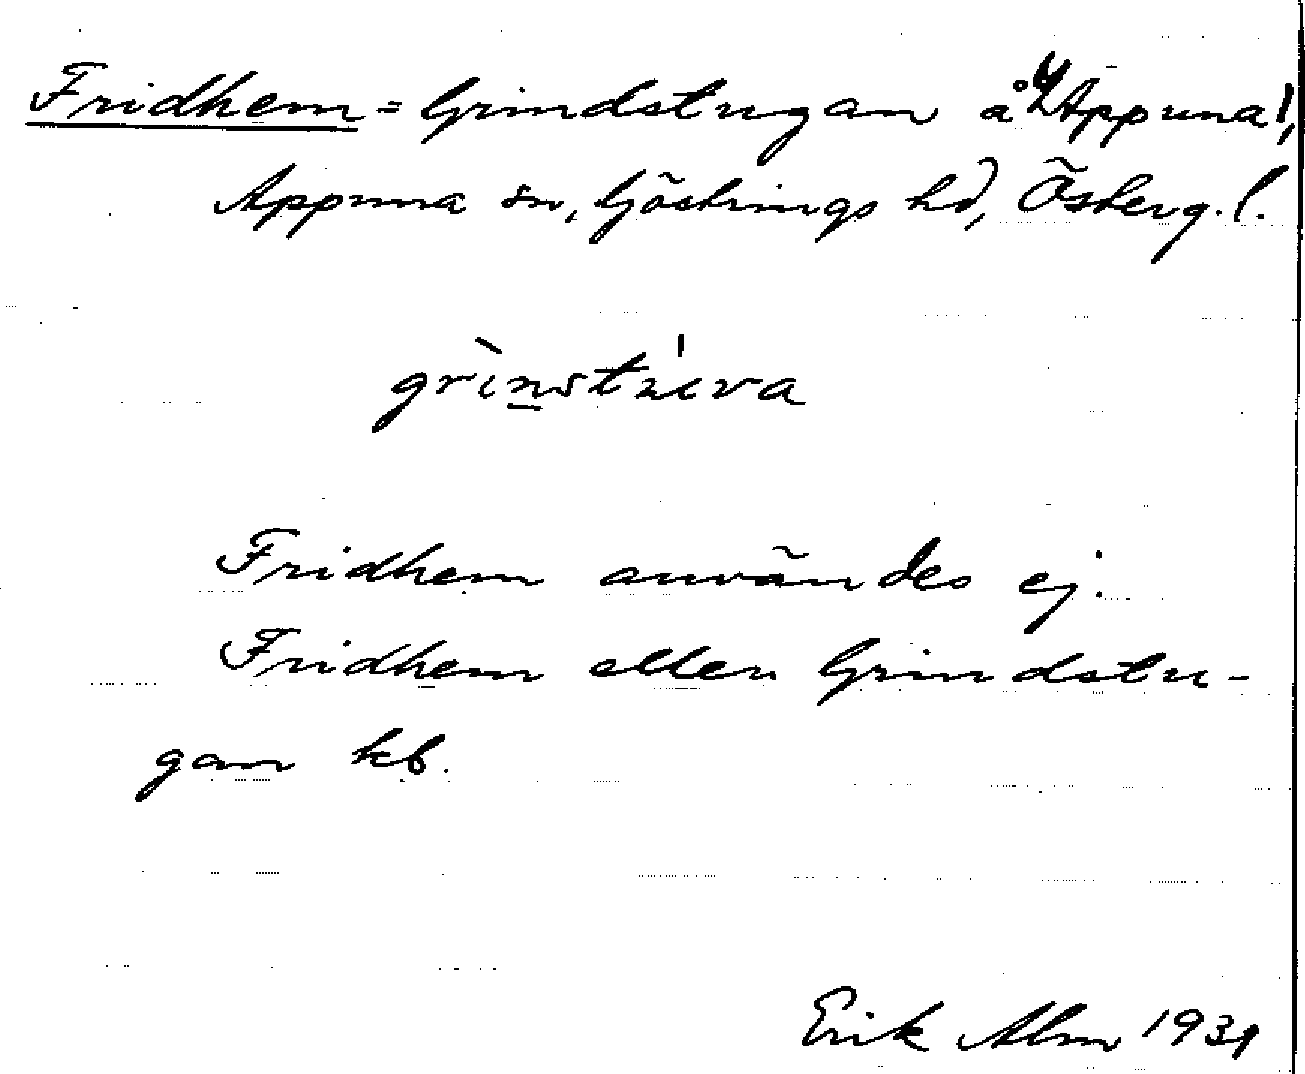 Fridhem = Grindstugan å Appuna l,
Appuna sn, Göstrings hd, Österg. l.
grìnstúva
Fridhem användes ej.
Fridhem eller Grindstu-
gan kb.
Erik Alm 1931